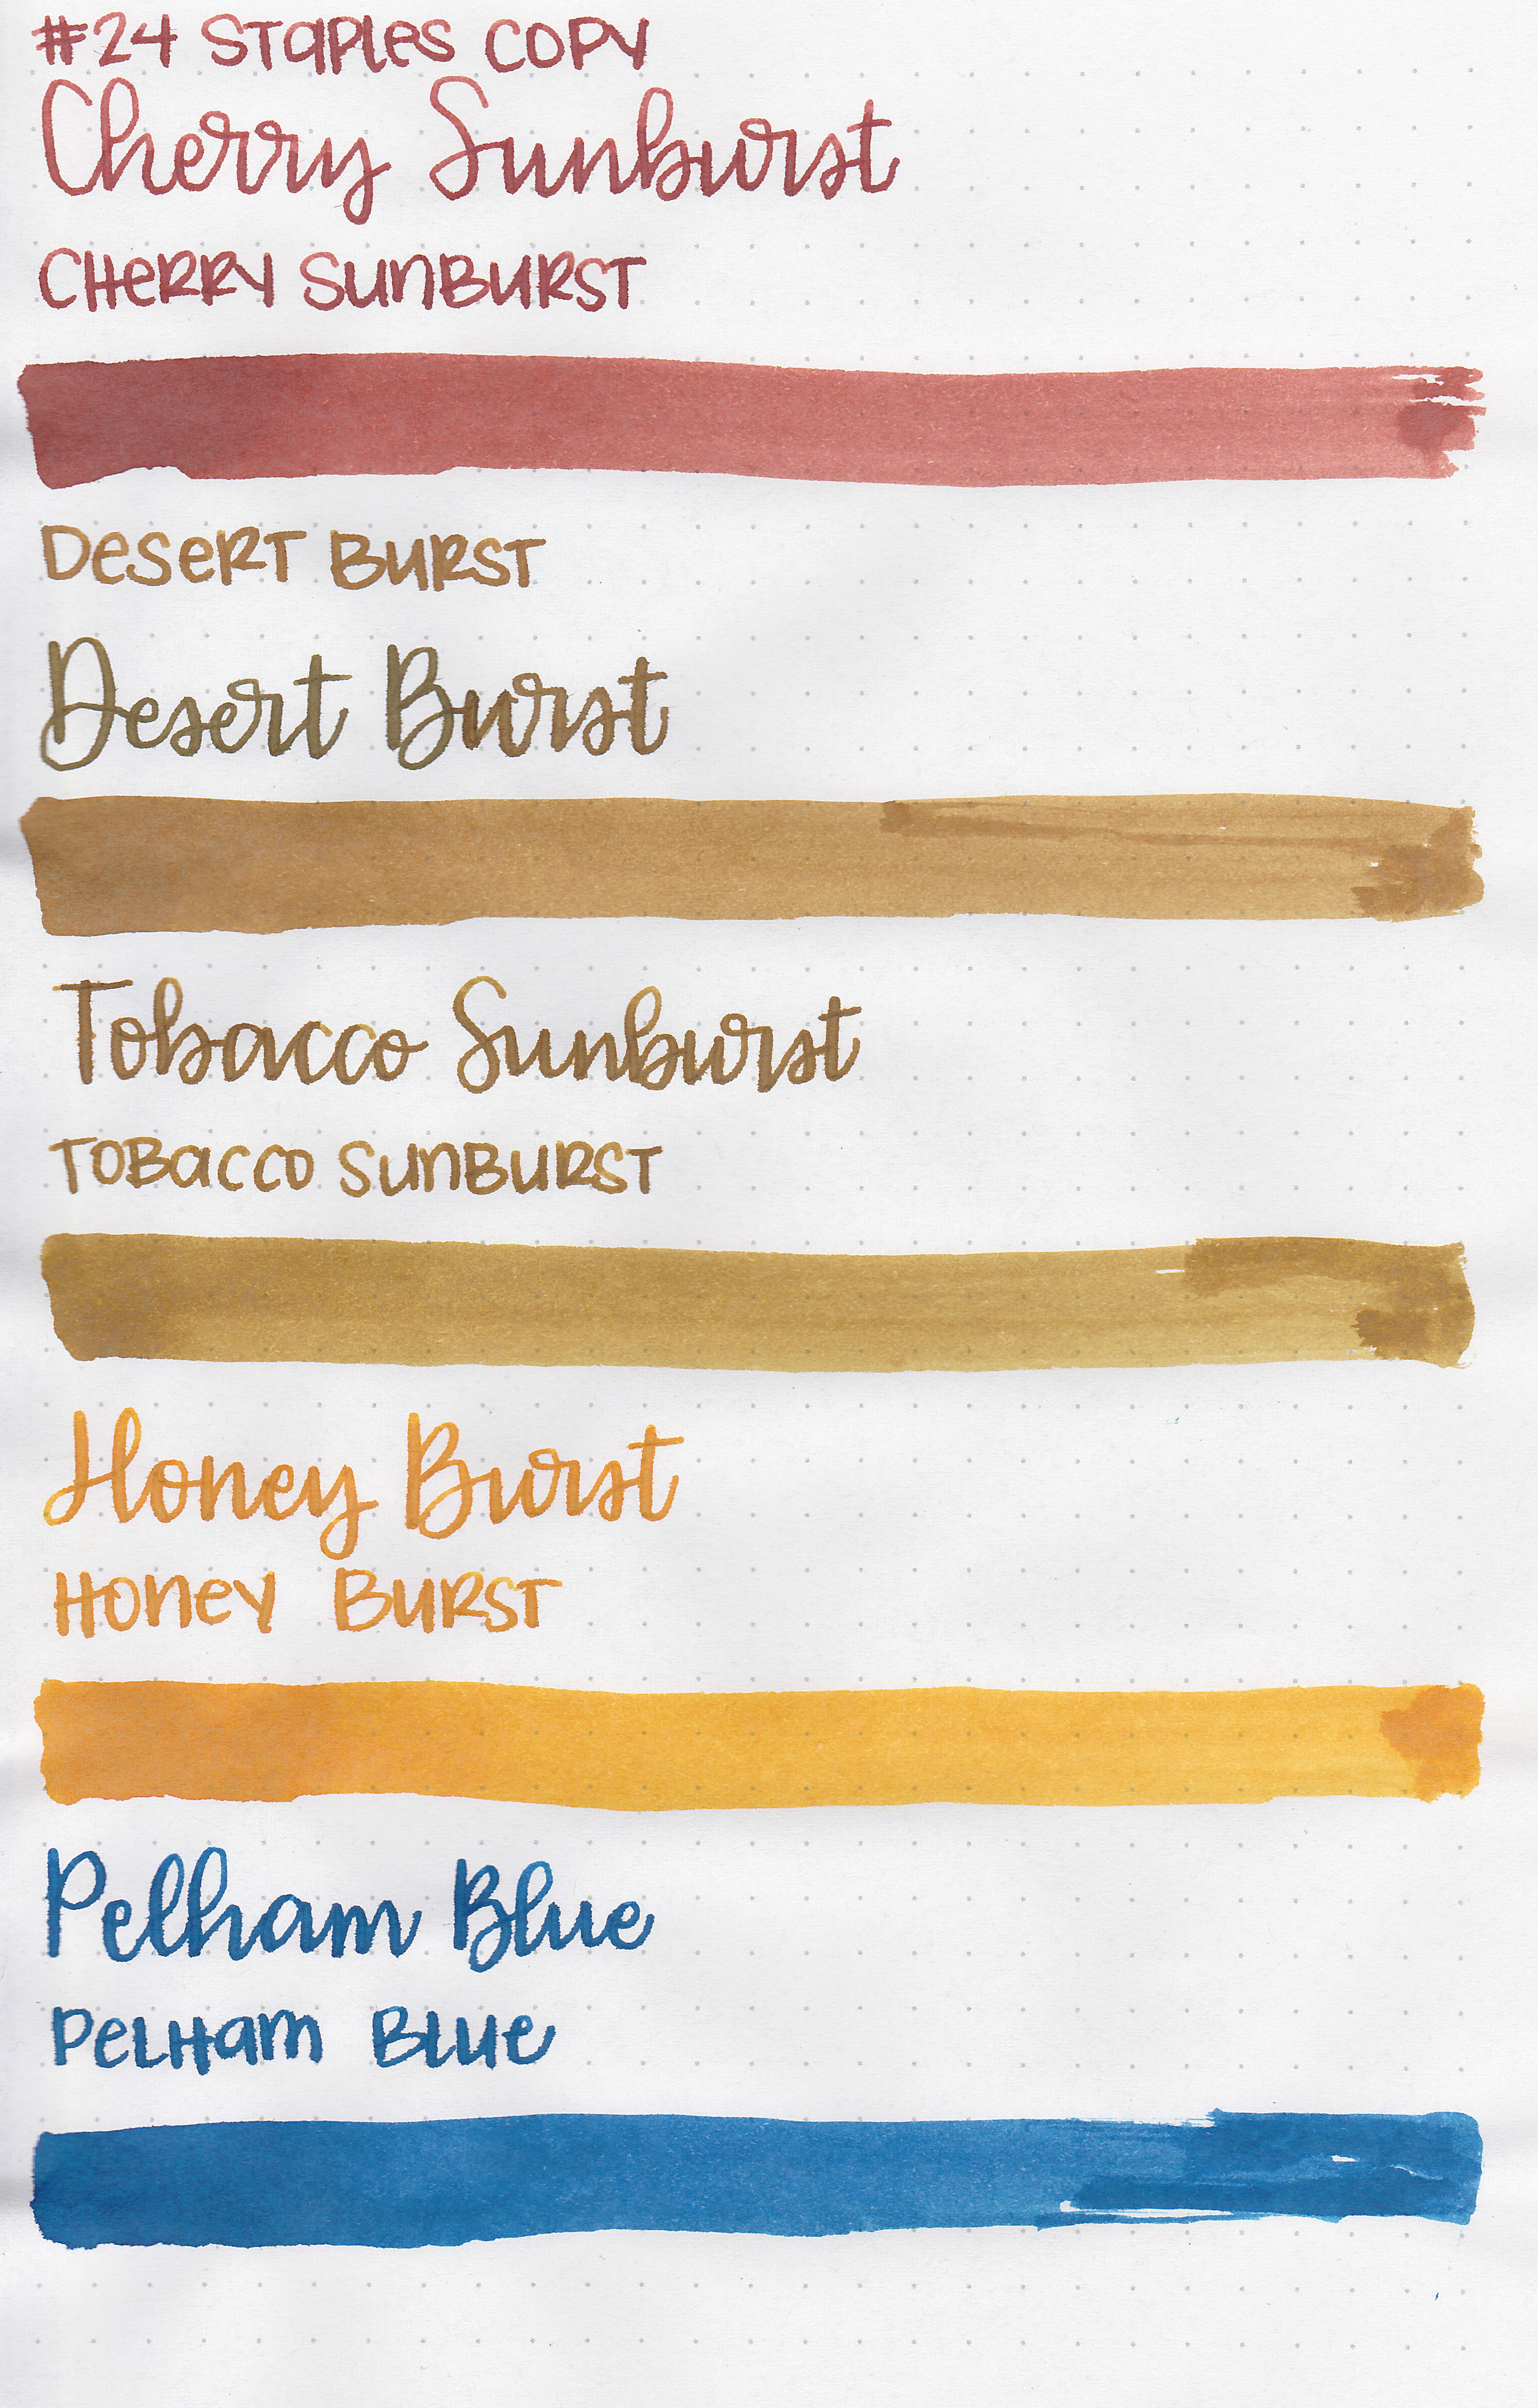 #24 STaPLes COPY
Cherry Sunburst
CHeRRY SunBuRST
DeSeRT BuRST
Desert Burst
Tobacco Sunburst
TOBaCCO SunBuRST
Honey Burst
HOney BuRST
Pelham Blue
PeLHam BLue